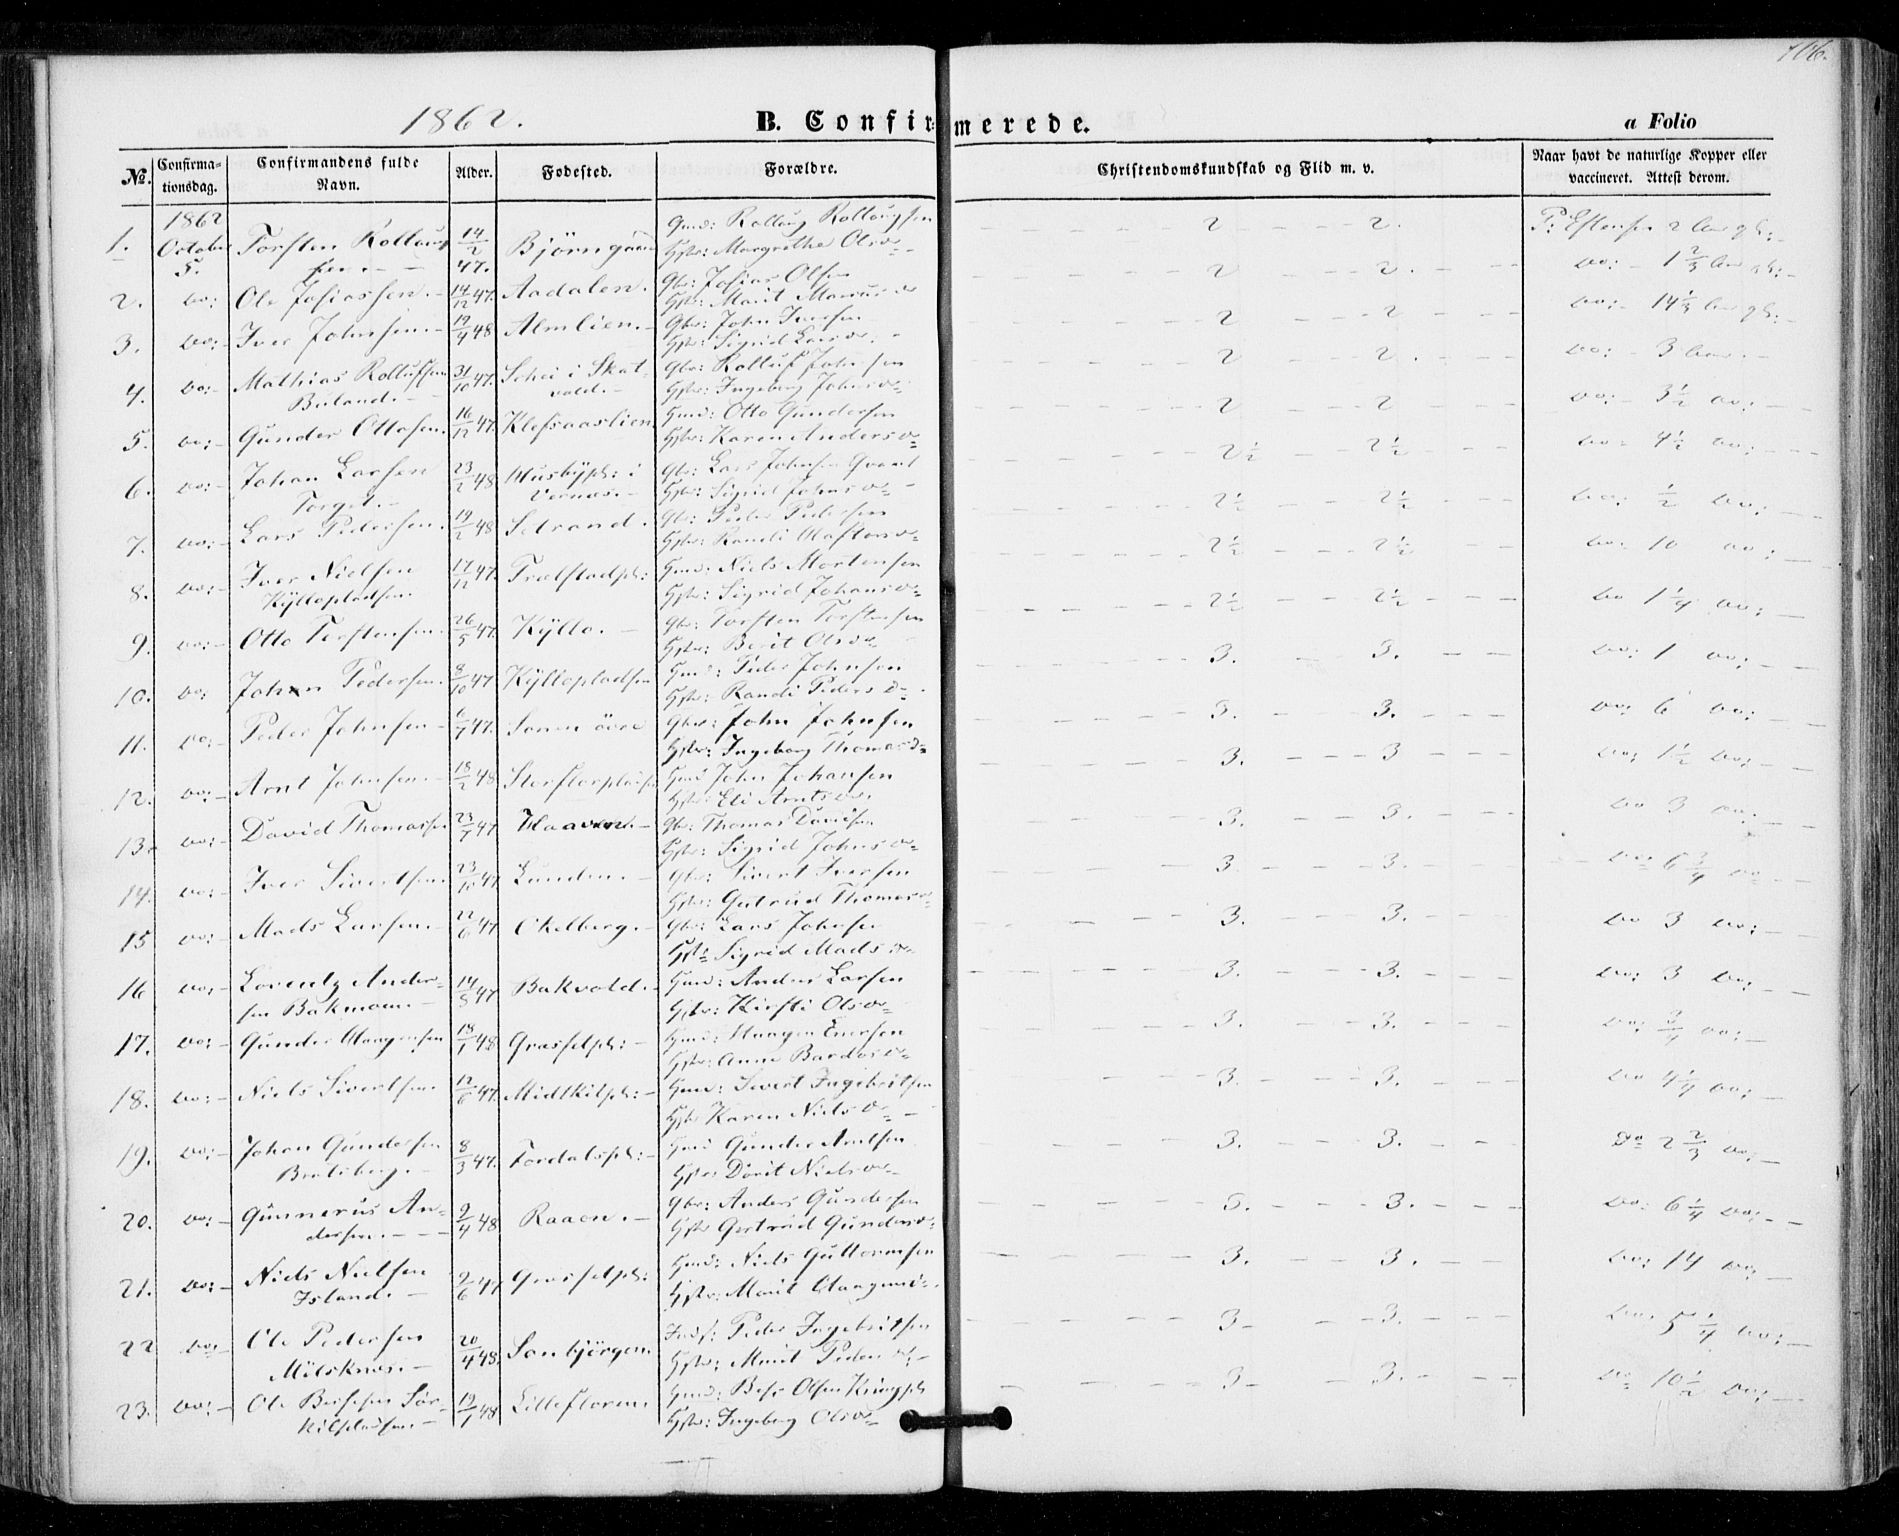 106.
1862. B. Confirmerede. a Folio
№. Confirmationsdag. Confirmandens fulde Navn. Alder. Fødested. Forældre. Christendomskundskab og Flid m. v. Naar havt de naturlige Kopper eller vaccineret. Attest derom.
1862
1. October 5. Torsten Rollaugsen 14/2 47. Bjørngaard Gmd: Rollaug Rollaugsen
Hstr: Margrethe Olsd 2 2.
2. do: Ole Josiassen. 14/12 47. Aadalen. Gbr: Josias Olsen
Hstr: Marit 2 2. do: 1 2/3
3. do: Iver Johnsen. 19/4 48 Almlien. Gbr: John Iversen
Hstr: Sigrid Larsd. 2 2 do: 14 1/3
4. do: Mathias Rollufsen 31/10 47. Schei i Skatvold. Gbr: Rolluf Johnsen
Hstr: Ingeborg Johnsd. 2 2. do: 3
5. do: Gunder Ottosen. 16/12 47. Klefsaaslien Gmd: Otto Gundersen
Hstr: Karen Andersd 2 2 do: 3 1/2 do:
6. do: Johan Larsen Torget. 23/2 48 Husbypl: i Vernæs. Gbr: Lars Johnsen
Hstr: Sigrid Johnsd 2 1/2 2 1/2 do: 4 1/2 do:
7. do: Lars Pedersen. 19/2 48 Setrand. Gbr: Peder Pedersen
Hstr: Randi Olafsdr 2 1/2 2 1/2 do: 1/2 do:
8. do: Iver Nielsen Kyllopladsen. 17/12 47. Trælstadpl: Gmd: Niels Mortensen
Hstr: Sigrid Johansd 2 1/2 2 1/2 do: 10 do:
9. do: Otto Torstensen. 26/5 47. Kyllo. Gbr: Torsten Torstensen
Hstr: Berit Olsd 2 1/2 2 1/2 do 1 1/4 do:
10. do: John Pedersen. 8/10 47 Kyllopladsen Gmd: Peder Johnsen
Hstr: Randi Pedersd. 3. 3. do: 1 do:
11. do: Peder Johnsen 6/7 47. Sonen övre Gbr: John Johnsen
Hstr: Ingeborg Thomasd 3. 3. do: 6 do:
12. do: Arnt Johnsen. 18/2 48 Storflorpladsen Gmd John Johansen
Hstr: Eli Arntsd. 3. 3 do: 1 1/2 do:
13. do: David Thomassen 23/7 47 Haaven. Gbr: Thomas Davidsen
Hstr: Sigrid Johnsd 3. 3. do 3 do:
14. do: Iver Sivertsen. 23/10 47 Lunden. Gbr: Sivert Iversen
Hstr: Gutrud Thomasd 3. 3. do: 6 3/4 do
15 do: Mads Larsen. 22/6 47 Okelberg. Gbr: Lars Johnsen
Hstr: Sigrid Madsd 3. 3. do 3 do:
16 do: Lorentz Andersen Bakmoen 14/8 47 Bakvold. Gmd: Anders Larsen
Hstr: Kirsti Olsd 3. 3. do: 3 do:
17. do: Gunder Haagensen 18/1 48 Græsletpl: Gmd: Haagen Enersen
Hstr: Anne Bardosd 3. 3. do: 3/4 do:
18. do: Niels Sivertsen. 12/6 47. Midtkilpl: Gmd: Sivert Ingebritsen
Hstr Karen Nielsd 3. 3. do 4 1/4 do:
19. do: Johan Gundersen 8/3 47. Fordalspl: Gmd Gunder Arntsen
Hstr Dorit Nielsd 3. 3. Do 2 2/3 do:
20. do: Gunnerus Andersen. 9/4 48 Raaen. Gbr: Anders Gundersen
Hstr Gertrud Gundersd 3. 3. do: 6 1/4 do:
21. do: Niels Nielsen Island. 2/6 47 Græsletpl: Gmd: Niels Guttormsen
Hstr: Marit 3. 3. do: 14 do:
22 do: Ole Pedersen 20/4 48. Sonbjörgen. Inds: Peder Ingebritsen
Hstr: Marit Pedersd. 3 3. do: 5 1/4 do:
23. do: Ole 19/1 48 Lillefloren. Gmd:
Hstr: Ingeborg Olsd 3 3. do 10 1/2 do: